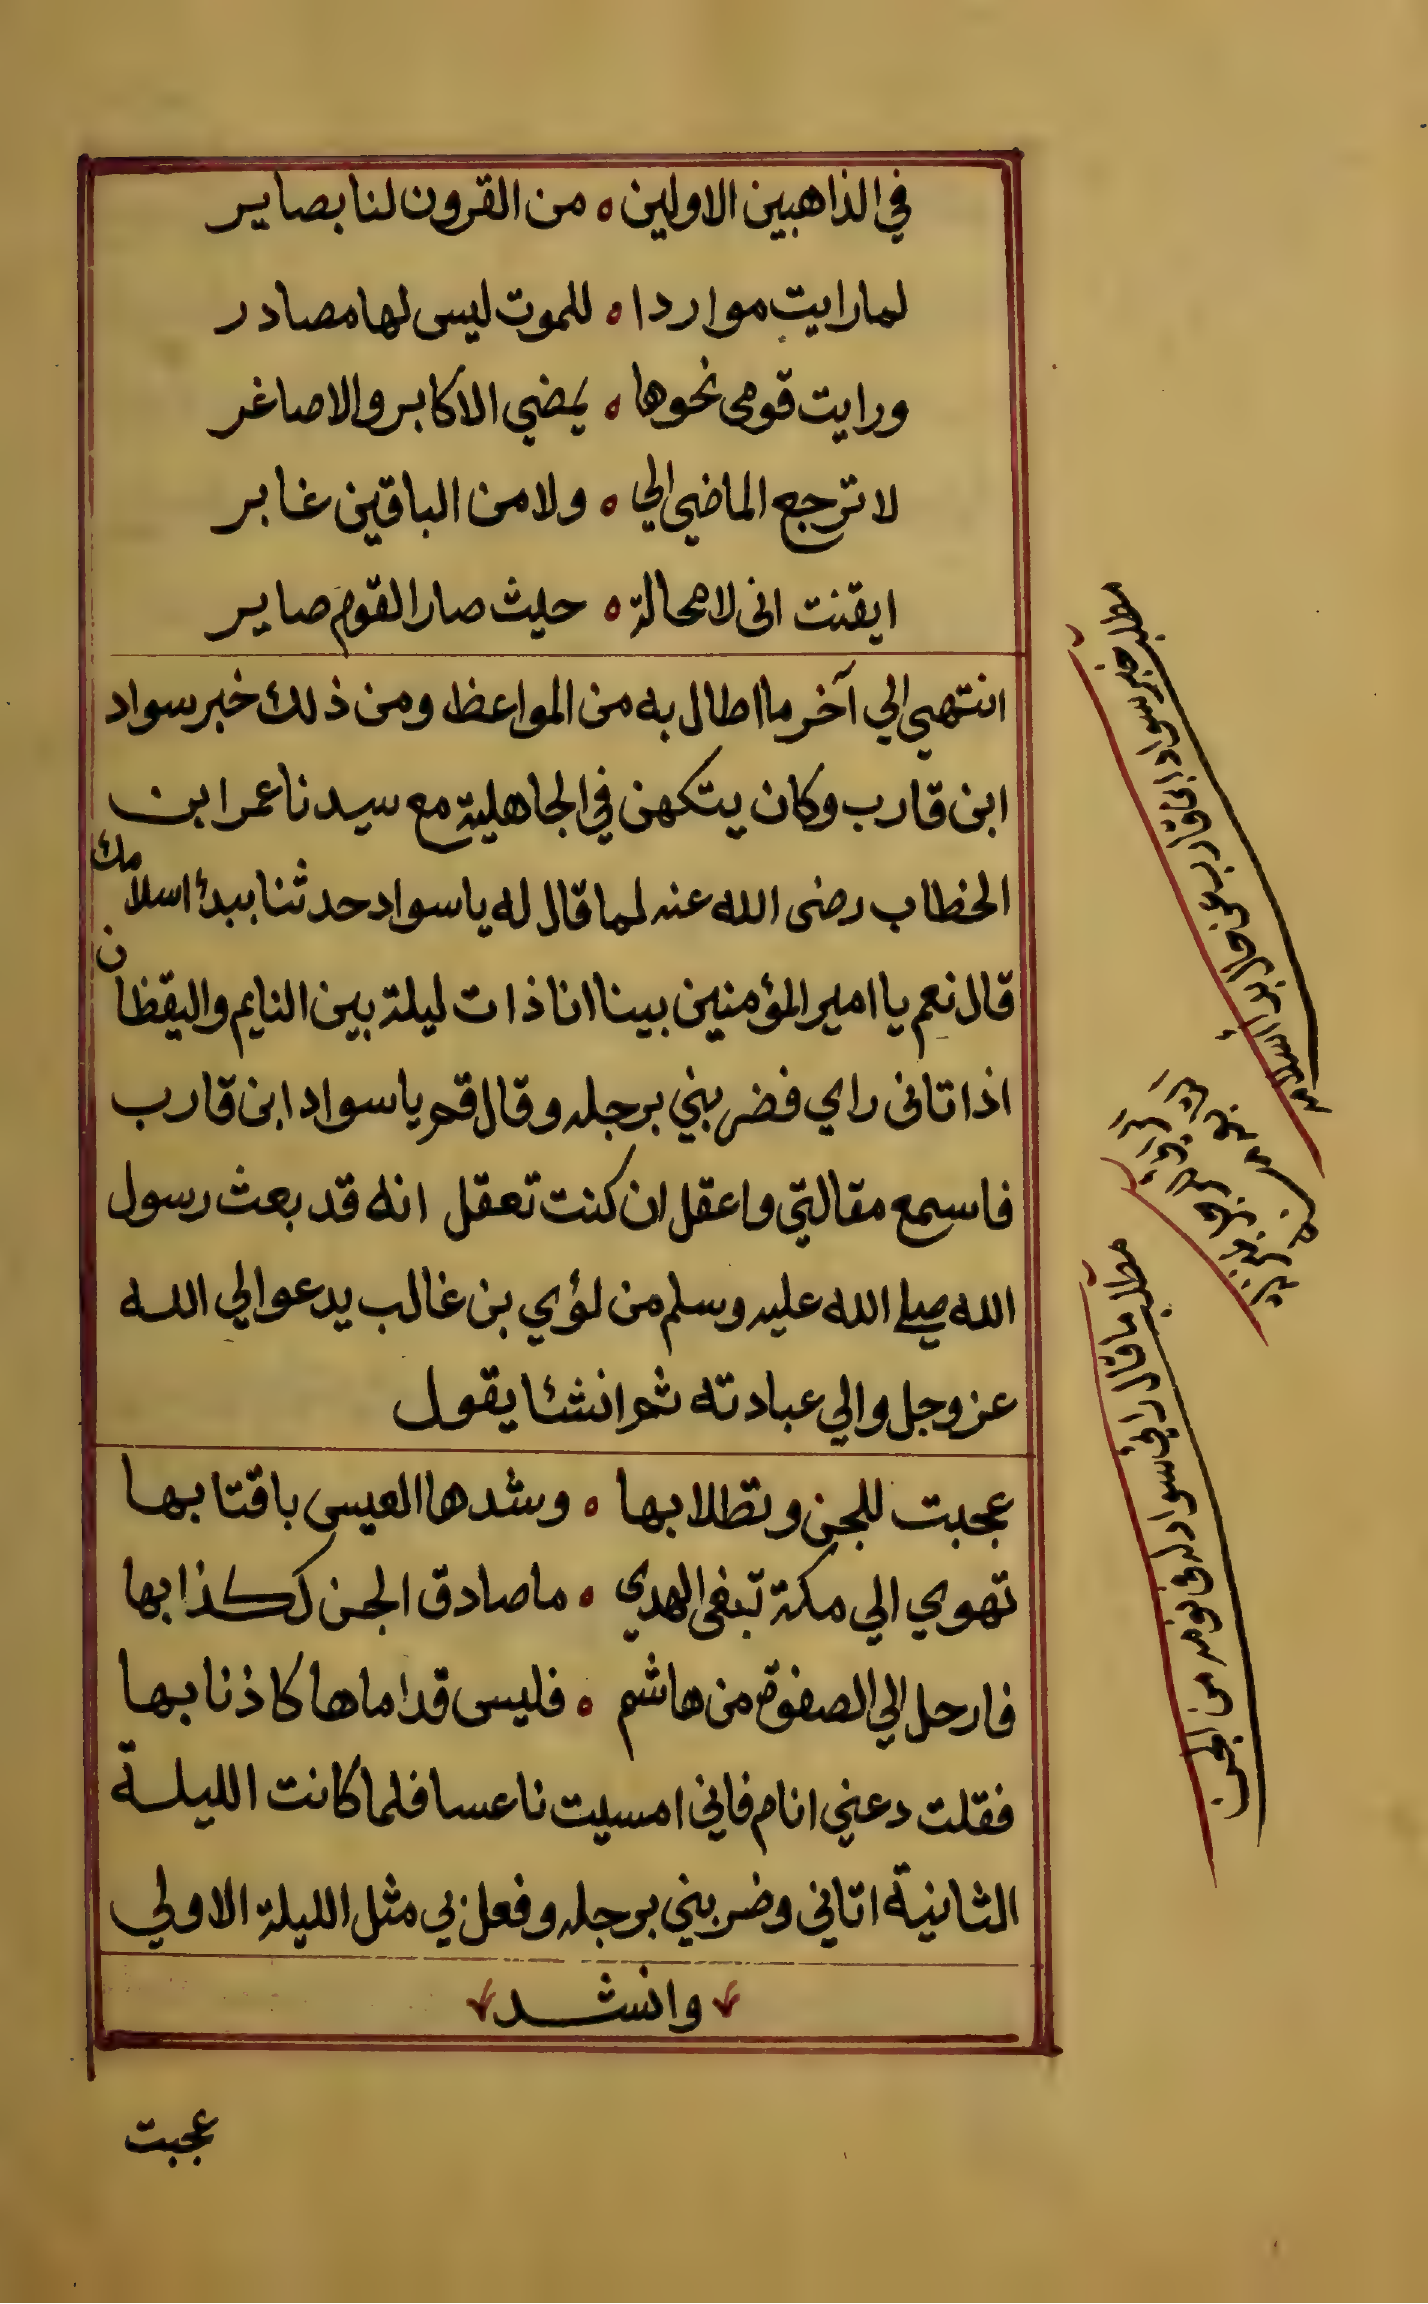 في الذاهبين الاولين ه من القرون لنا بصاير
لما رايت مواردا ه للموت ليس لها مصادر
ورايت قومي نحوها ه يمضي الاكابر والاصاغر
لا ترجع الماضي الي ه ولا من الباقين غابر
ايقنت اني لا محالة ه حيث صار القوم صاير
انتهي الي آخر ما اطال به من المواعظ ومن ذلك خبر سواد
ابن قارب وكان يتكهن في الجاهلية مع سيدنا عمر ابن
الخطاب رضي الله عنه لما قال له يا سواد حدثنا ببدئ اسلامك
قال نعم يا امير المؤمنين بينا انا ذات ليلة بين النايم واليقظان
اذ اتاني راي فضربني برجله وقال قم يا سواد ابن قارب
فاسمع مقالتي واعقل ان كنت تعقل انه قد بعث رسول
الله صلي الله عليه وسلم من لؤي بن غالب يدعوا لي الله
عز وجل والي عبادته ثم انشئا يقول
عجبت للجن وتطلابها ه وشدها العيسي باقتابها
تهوي الي مكة تبغي الهدي ه ما صادق الجن ككذابها
فارحل الي الصفوة من هاشم ه فليس قداماها كاذنابها
فقلت دعني انام فاني امسيت ناعسا فلما كانت الليلة
الثانية اتاني وضربني برجله وفعل بي مثل الليلة الاولي
وانشد
عجبت
مطلب خبر سواد ابن قارب
اسلام
مطلب ما قال راي سواد له في نومه من الجن